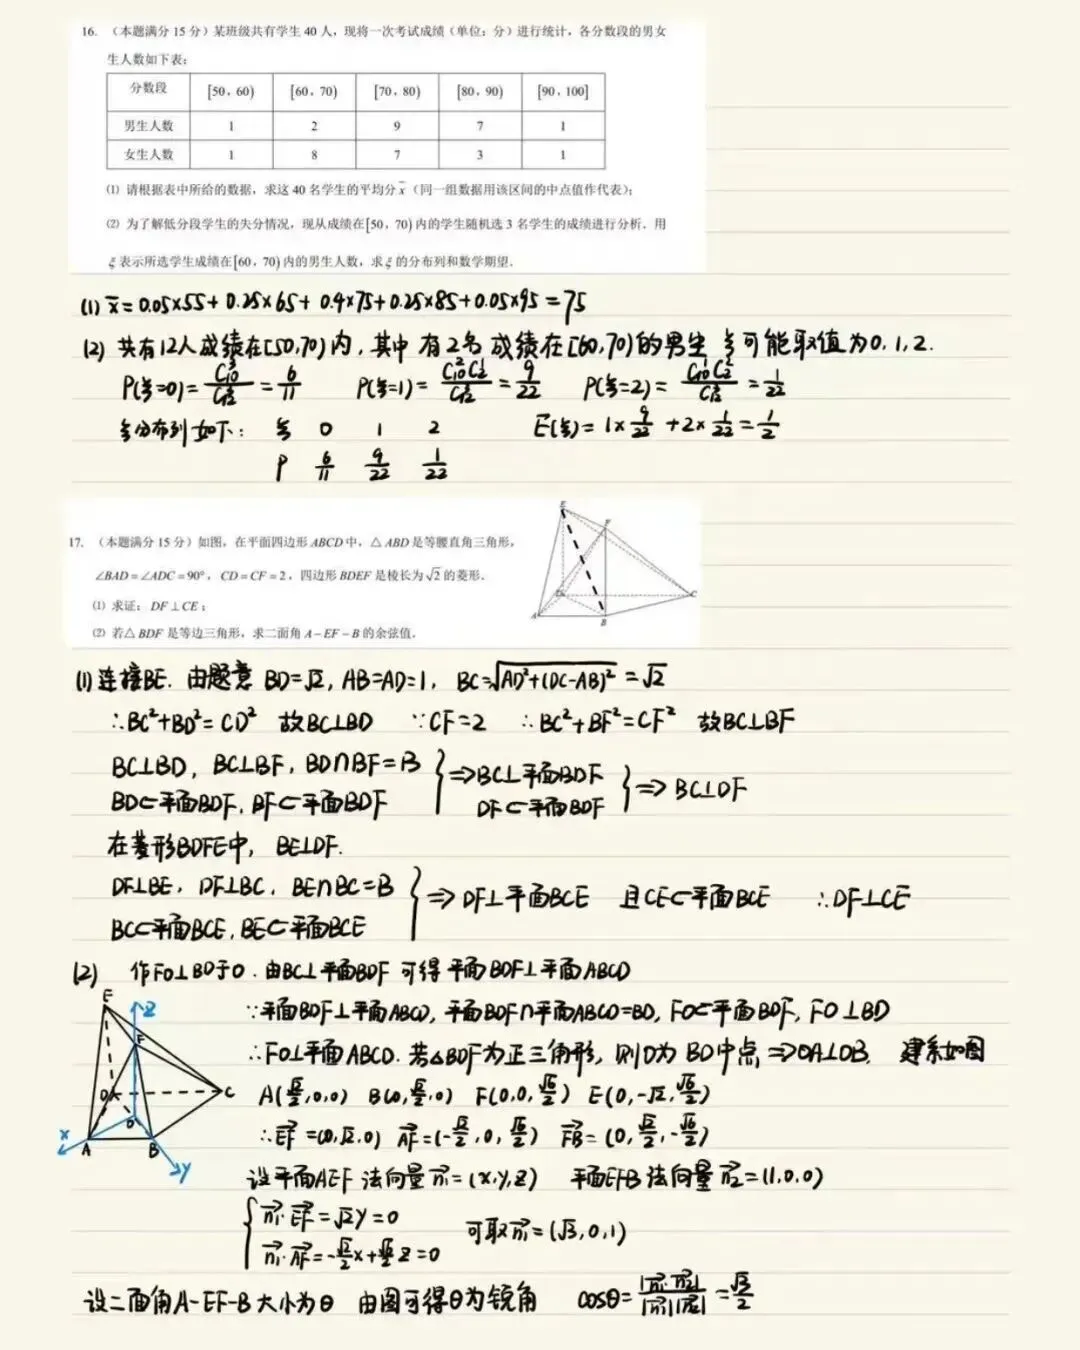 16. （本题满分 15 分）某班级共有学生 40 人，现将一次考试成绩（单位：分）进行统计，各分数段的男女
生人数如下表：
分数段 [50，60) [60，70) [70，80) [80，90) [90，100]
男生人数 1 2 9 7 1
女生人数 1 8 7 3 1
⑴ 请根据表中所给的数据，求这 40 名学生的平均分 x̄（同一组数据用该区间的中点值作代表）；
⑵ 为了解低分段学生的失分情况，现从成绩在[50，70) 内的学生随机选 3 名学生的成绩进行分析．用
ξ 表示所选学生成绩在[60，70) 内的男生人数，求 ξ 的分布列和数学期望．
(1) x̄=0.05×55+0.25×65+0.4×75+0.25×85+0.05×95=75
(2) 共有12人成绩在[50,70)内，其中有2名成绩在[60,70)的男生 ξ可能取值为0,1,2.
P(ξ=0)=C₁₀³/C₁₂³=6/11 P(ξ=1)=C₁₀²C₂¹/C₁₂³=9/22 P(ξ=2)=C₁₀¹C₂²/C₁₂³=1/22
ξ分布列如下： ξ 0 1 2 E(ξ)=1×9/22+2×1/22=1/2
P 6/11 9/22 1/22
17. （本题满分 15 分）如图，在平面四边形 ABCD 中，△ABD 是等腰直角三角形，
∠BAD=∠ADC=90°，CD=CF=2，四边形 BDEF 是棱长为√2 的菱形．
⑴ 求证：DF⊥CE；
⑵ 若△BDF 是等边三角形，求二面角 A−EF−B 的余弦值．
E
F
D
C
A
B
(1) 连接BE. 由题意 BD=√2, AB=AD=1, BC=√(AD²+(DC-AB)²)=√2
∴BC²+BD²=CD² 故BC⊥BD ∵CF=2 ∴BC²+BF²=CF² 故BC⊥BF
BC⊥BD, BC⊥BF, BD∩BF=B
BD⊂平面BDF, BF⊂平面BDF } ⇒BC⊥平面BDF
DF⊂平面BDF } ⇒ BC⊥DF
在菱形BDFE中，BE⊥DF.
DF⊥BE, DF⊥BC, BE∩BC=B
BC⊂平面BCE, BE⊂平面BCE } ⇒ DF⊥平面BCE 且CE⊂平面BCE ∴DF⊥CE
(2) 作FO⊥BD于O. 由BC⊥平面BDF 可得 平面BDF⊥平面ABCD
∵平面BDF⊥平面ABCD, 平面BDF∩平面ABCD=BD, FO⊂平面BDF, FO⊥BD
∴FO⊥平面ABCD. 若△BDF为正三角形, 则O为BD中点 ⇒OA⊥OB, 建系如图
E
Z
F
D
C
O
X
A
B
Y
A(√2/2,0,0) B(0,√2/2,0) F(0,0,√6/2) E(0,-√2,√6/2)
∴EF→=(0,√2,0) AF→=(-√2/2,0,√6/2) FB→=(0,√2/2,-√6/2)
设平面AEF法向量n₁→=(x,y,z) 平面EFB法向量n₂→=(1,0,0)
{ n₁→·EF→=√2y=0
n₁→·AF→=-√2/2x+√6/2z=0 可取n₁→=(√3,0,1)
设二面角A-EF-B大小为θ 由图可得θ为锐角 cosθ=|n₁→·n₂→|/|n₁→||n₂→|=√3/2